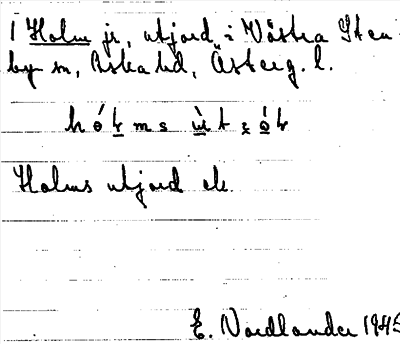 1 Holm jr, utjord, i Västra Sten-
by sn, Aska hd, Österg. l.
Holms utjord
E. Nordlander 1945